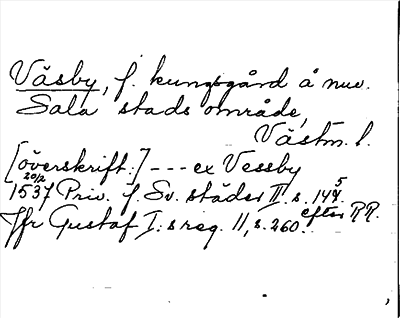 Väsby, f. kungsgård å nuv.
Sala stads område,
Västm. l.
[överskrift:] --- ex Vessby
20/2
1537 Priv. f. Sv. städer II. s. 145. efter RR.
Jfr Gustaf I:s reg. 11, s. 260.